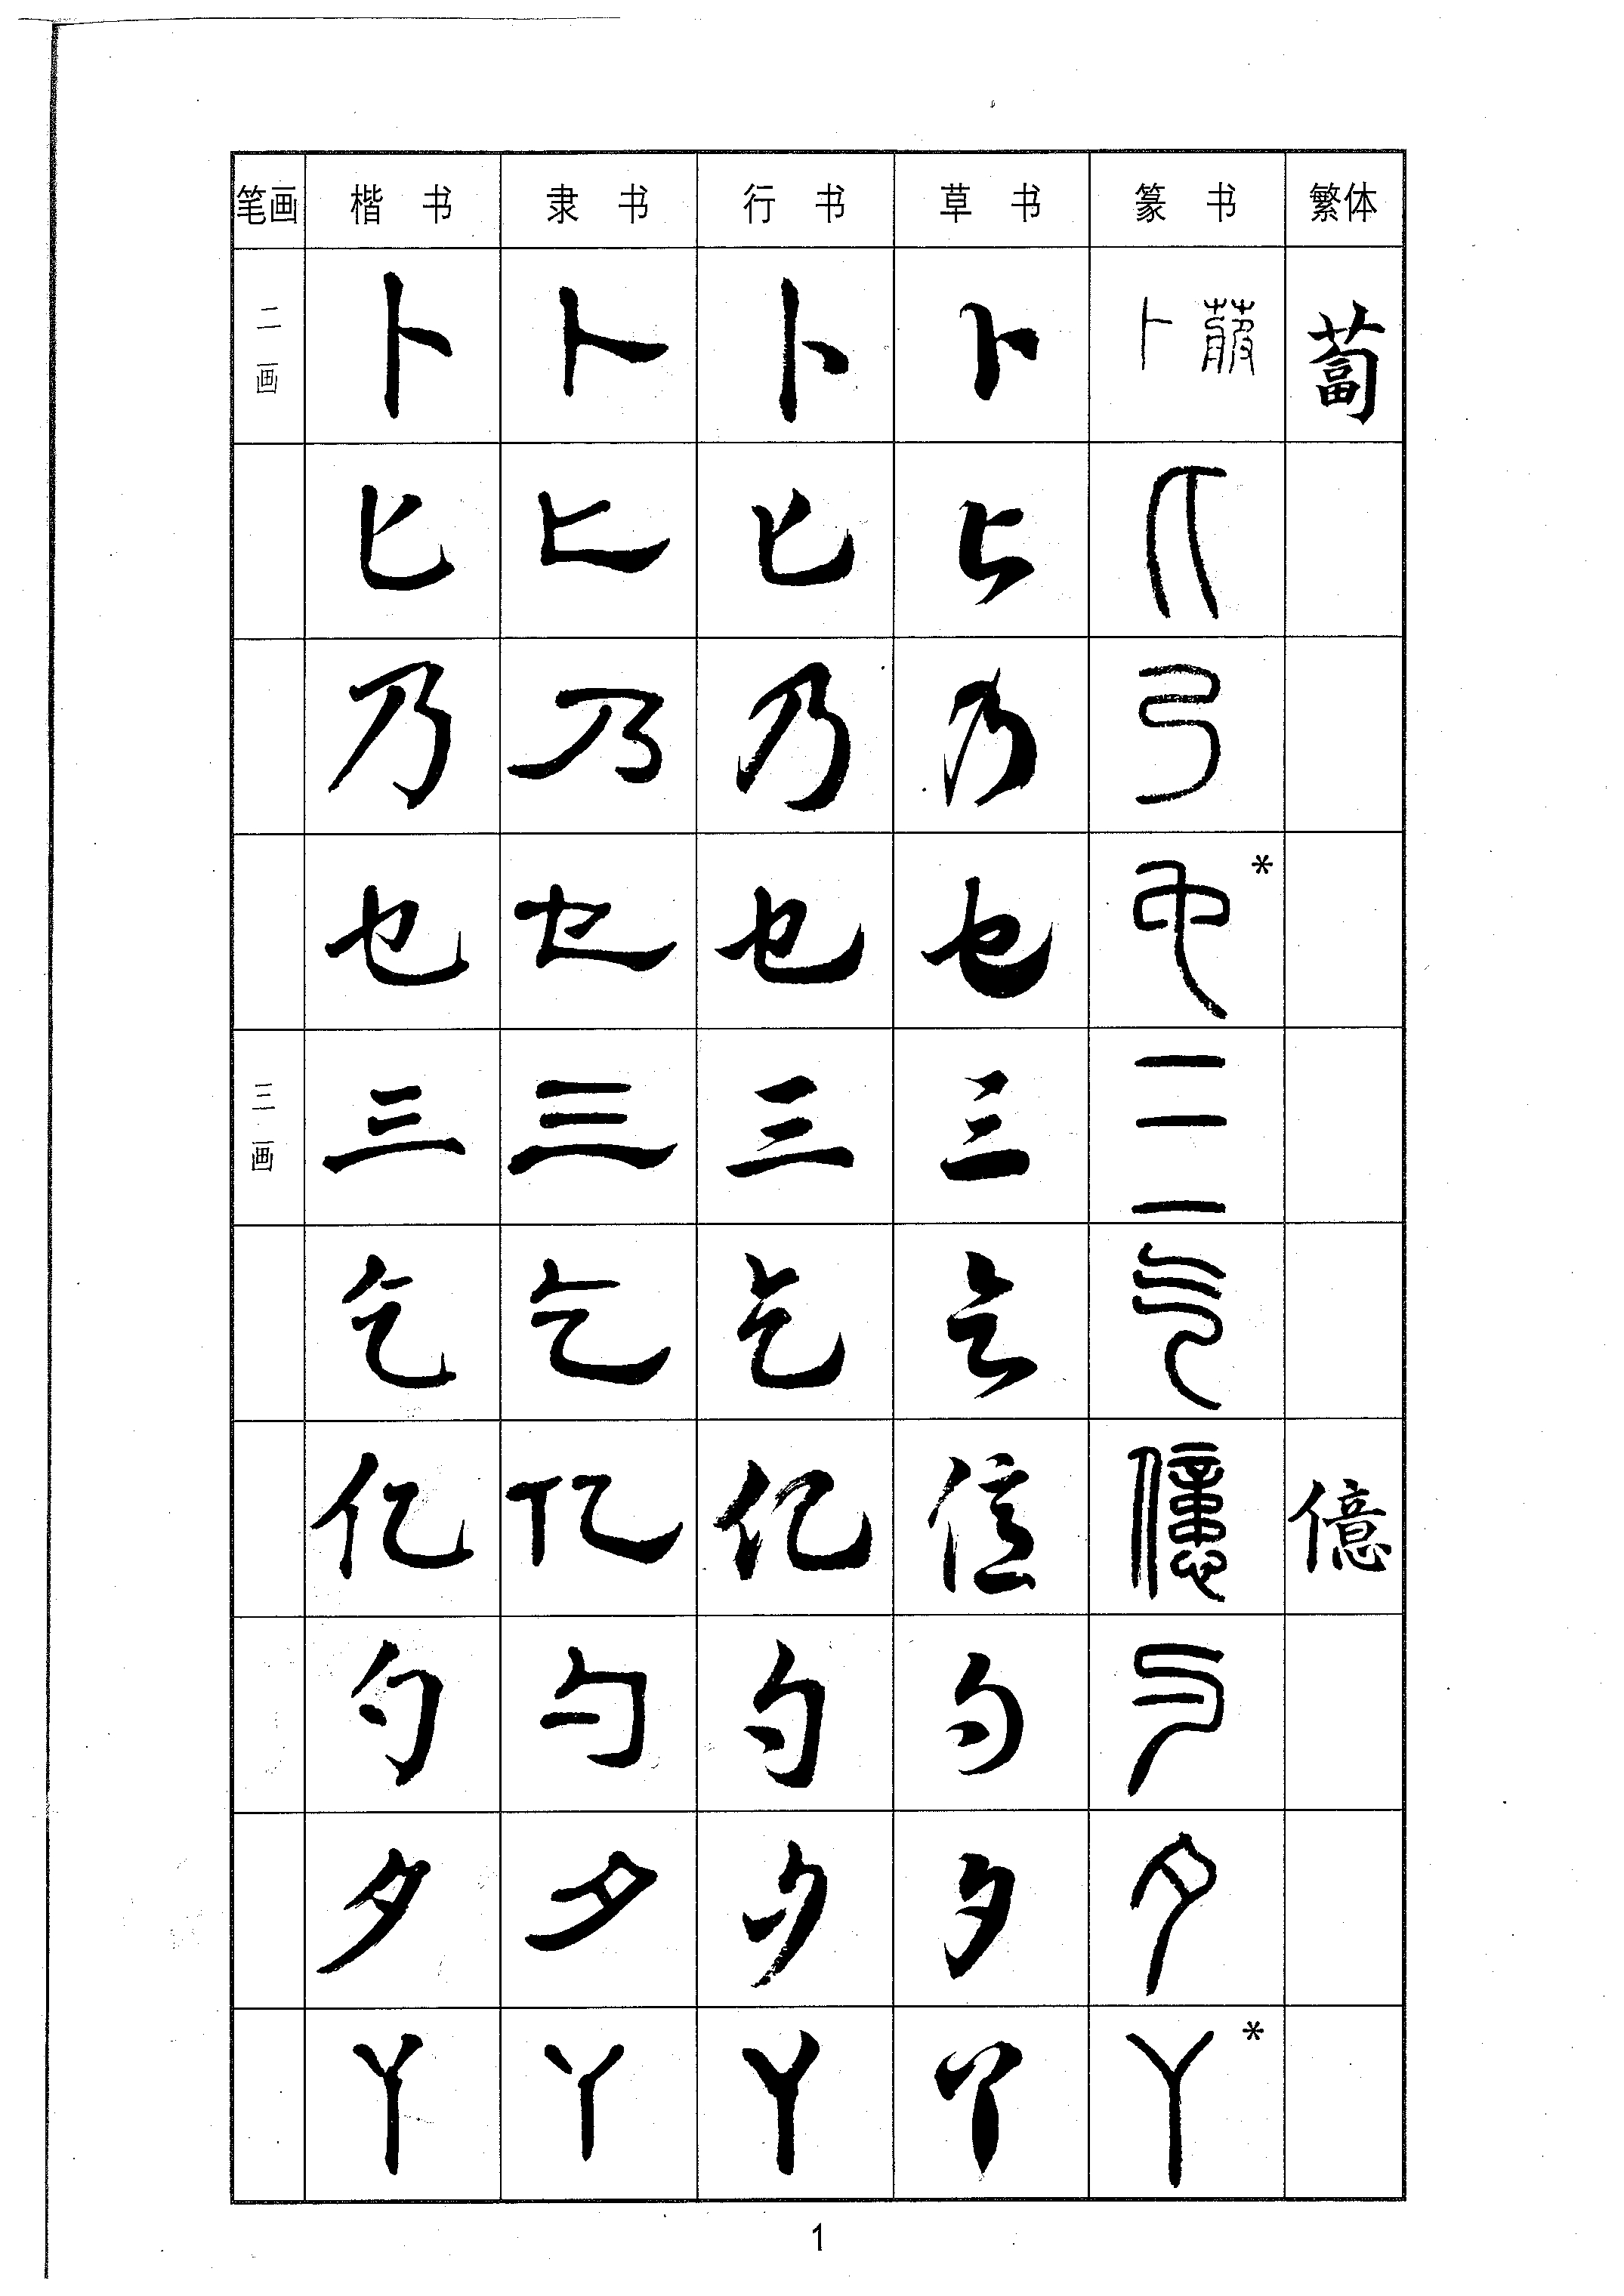 笔画 楷书 隶书 行书 草书 篆书 繁体
二画 卜 卜 卜 卜 卜 蔔
匕 匕 匕 匕 匕
乃 乃 乃 乃 乃
也 也 也 也 也 *
三画 三 三 三 三 三
乞 乞 乞 乞 乞
亿 亿 亿 億 億 億
勺 勺 勺 勺 勺
夕 夕 夕 夕 夕
丫 丫 丫 丫 丫 *
1